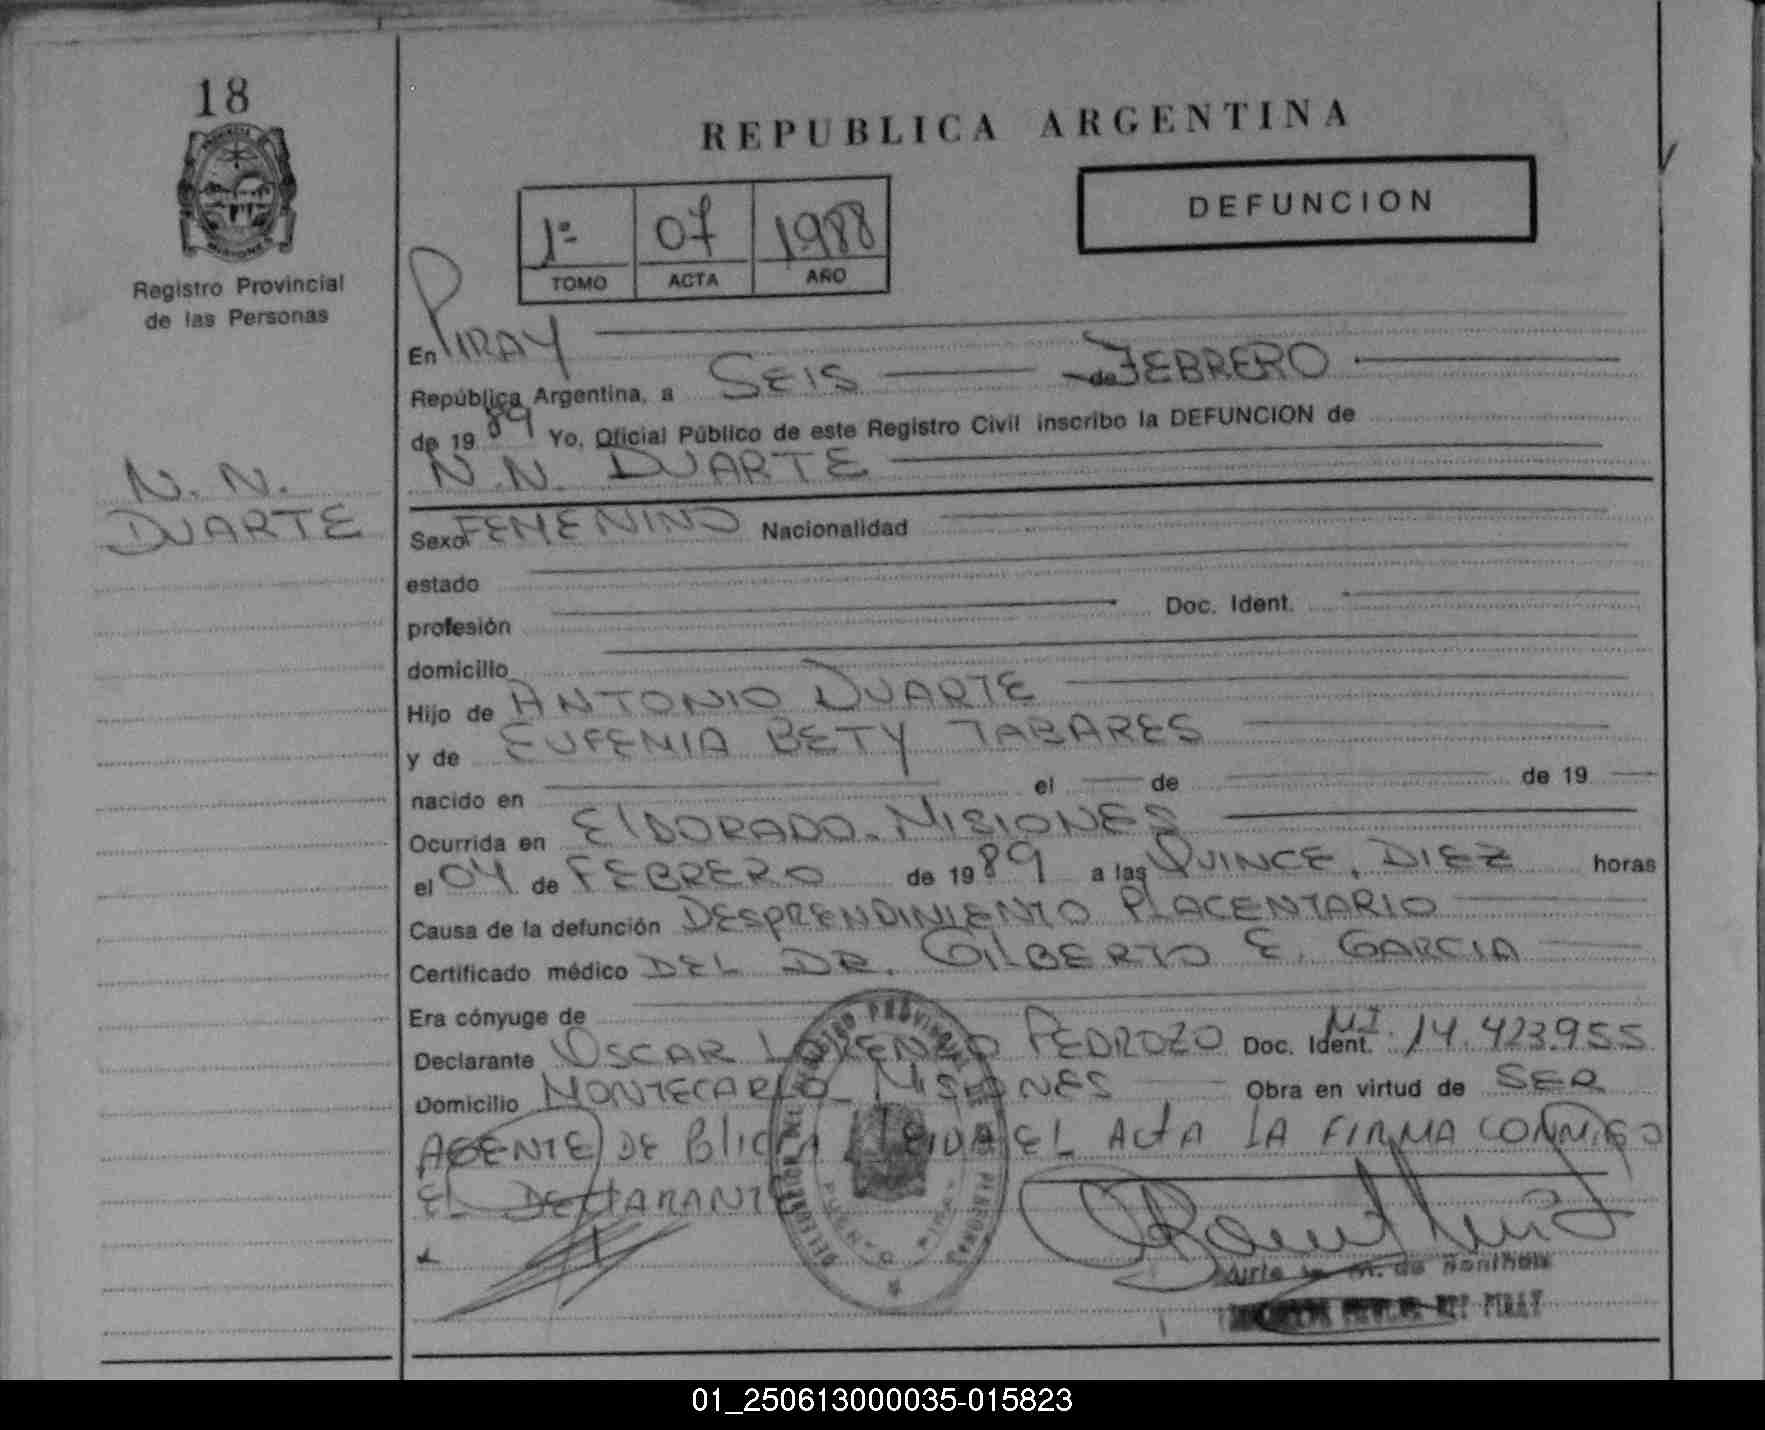 18
Registro Provincial
de las Personas
N. N.
DUARTE
REPUBLICA ARGENTINA
DEFUNCION
1º 07 1988
TOMO ACTA AÑO
En PIRAY
República Argentina, a SEIS de FEBRERO
de 19 89 Yo, Oficial Público de este Registro Civil inscribo la DEFUNCION de
N.N. DUARTE
Sexo FEMENINO Nacionalidad
estado
profesión Doc. Ident.
domicilio
Hijo de ANTONIO DUARTE
y de EUFENIA BETY TABARES
nacido en el de de 19
Ocurrida en ElDORADO - MISIONES
el 04 de FEBRERO de 19 89 a las QUINCE, DIEZ horas
Causa de la defunción DESPRENDIMIENTO PLACENTARIO
Certificado médico DEL DR. GILBERTO E. GARCIA
Era cónyuge de
Declarante OSCAR LORENZO PEDROZO Doc. Ident. M.I. 14.423.955
Domicilio MONTECARLO - MISIONES Obra en virtud de SER
AGENTE DE LEIDA EL ActA LA FIRMA CONMIGO
EL DEClARANTE
M. de
PIRAY
01_250613000035-015823